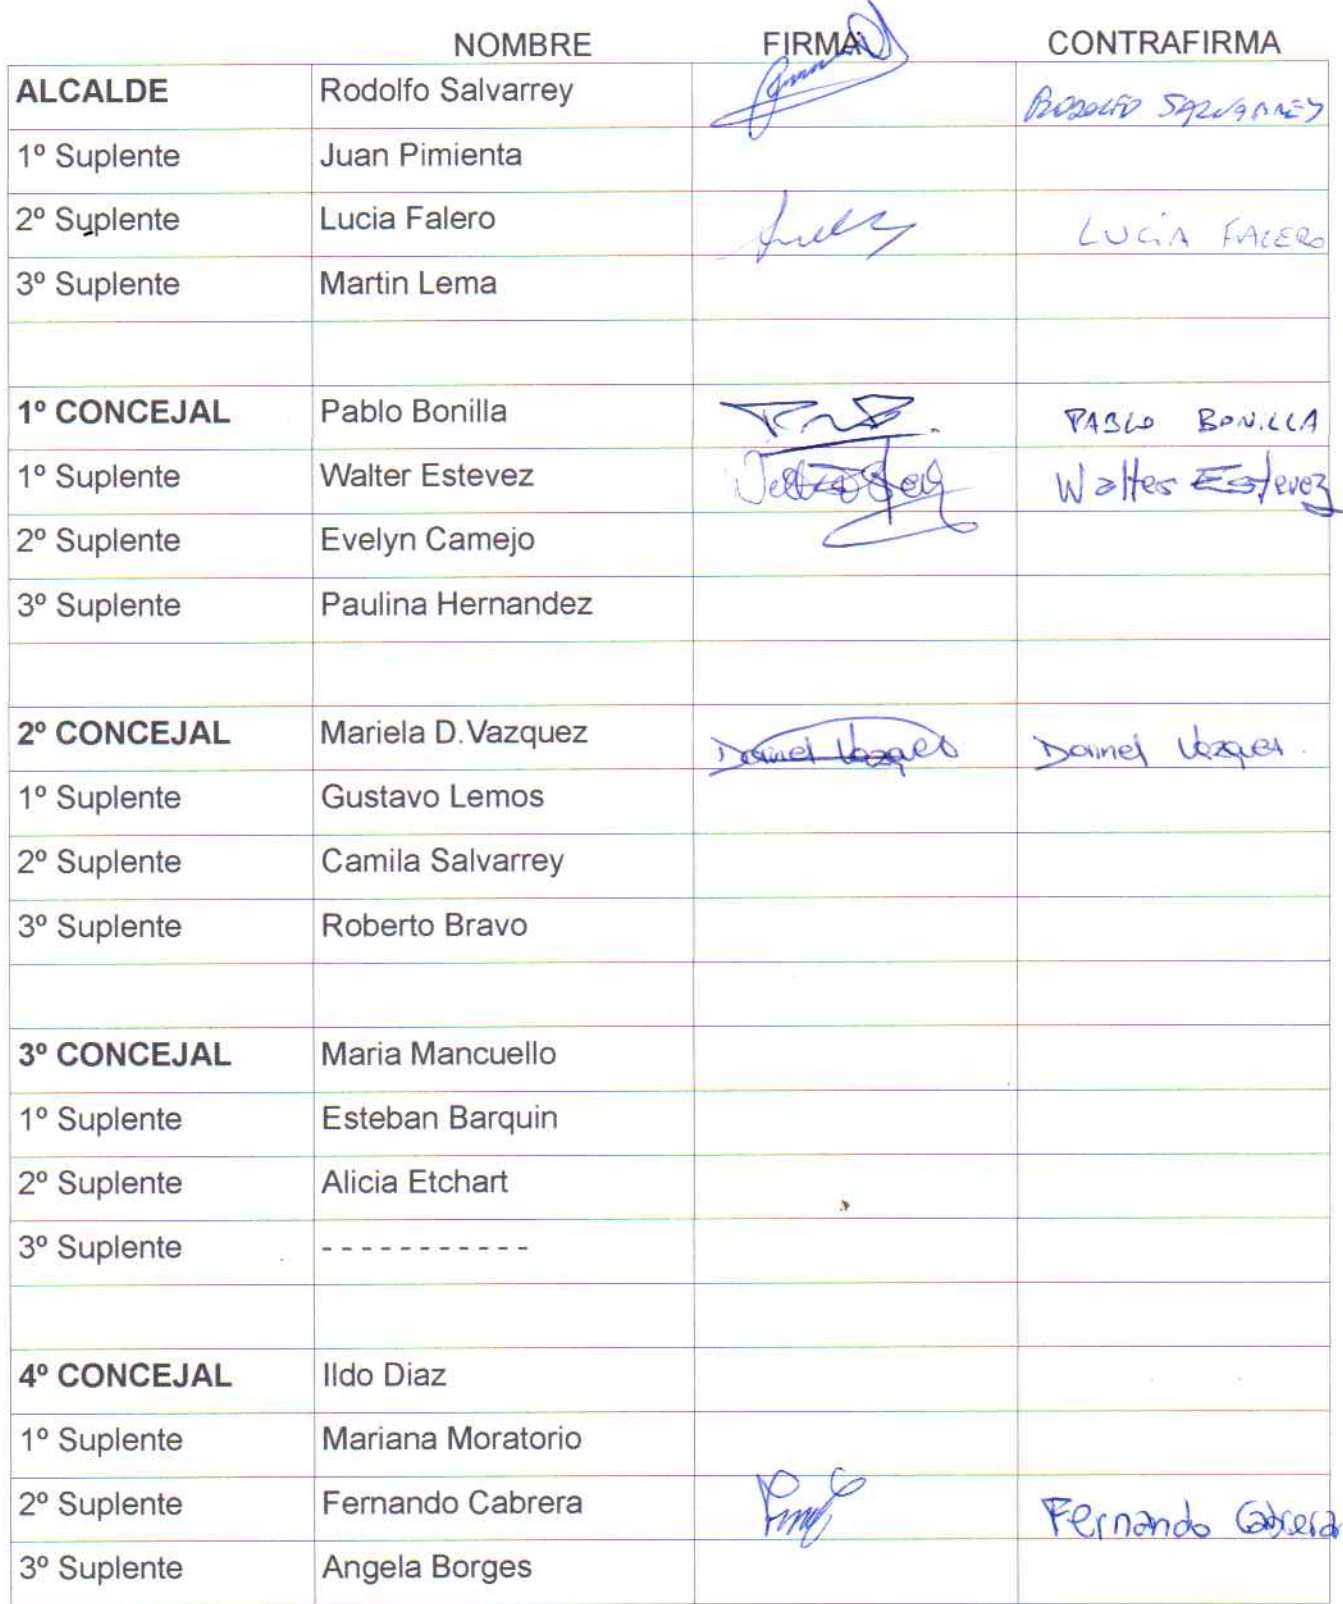 NOMBRE FIRMA CONTRAFIRMA
ALCALDE Rodolfo Salvarrey RODOLFO SALVARREY
1º Suplente Juan Pimienta
2º Suplente Lucia Falero LUCÍA FALERO
3º Suplente Martin Lema
1º CONCEJAL Pablo Bonilla PABLO BONILLA
1º Suplente Walter Estevez Walter Estevez
2º Suplente Evelyn Camejo
3º Suplente Paulina Hernandez
2º CONCEJAL Mariela D.Vazquez Daniel Vazquez Daniel Vazquez
1º Suplente Gustavo Lemos
2º Suplente Camila Salvarrey
3º Suplente Roberto Bravo
3º CONCEJAL Maria Mancuello
1º Suplente Esteban Barquin
2º Suplente Alicia Etchart
3º Suplente - - - - - - - - - - -
4º CONCEJAL Ildo Diaz
1º Suplente Mariana Moratorio
2º Suplente Fernando Cabrera Fernando Cabrera
3º Suplente Angela Borges